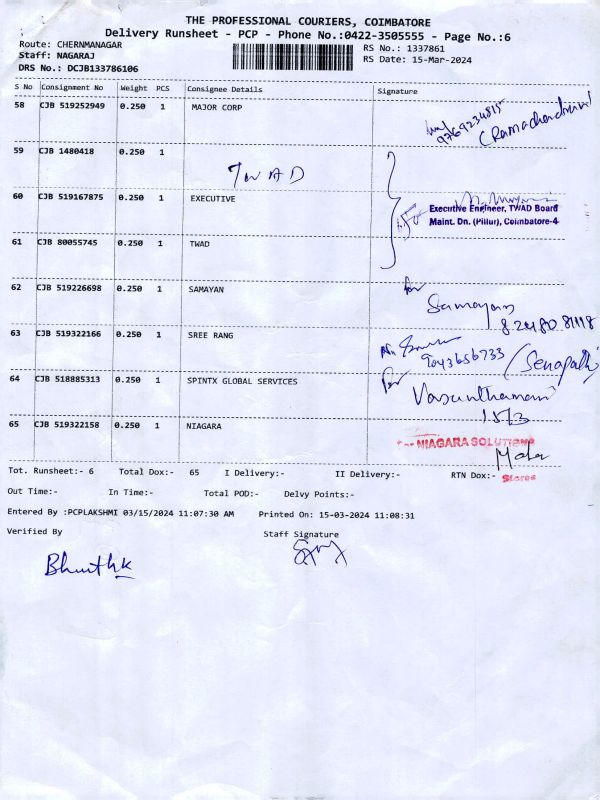 THE PROFESSIONAL COURIERS, COIMBATORE
Delivery Runsheet - PCP - Phone No.:0422-3505555 - Page No.:6
Route: CHERNMANAGAR
RS No.: 1337861
Staff: NAGARAJ
RS Date: 15-Mar-2024
DRS No.: DCJB133786106
S No Consignment No Weight PCS Consignee Details Signature
58 CJB 519252949 0.250 1 MAJOR CORP
9769234815
(Ramachandran)
59 CJB 1480418 0.250 1
TWAD
60 CJB 519167875 0.250 1 EXECUTIVE
Executive Engineer, TWAD Board
Maint. Dn. (Pillur), Coimbatore-4
61 CJB 80055745 0.250 1 TWAD
62 CJB 519226698 0.250 1 SAMAYAN
for
Samayan
63 CJB 519322166 0.250 1 SREE RANG
9043656733 (Senapathi)
64 CJB 518885313 0.250 1 SPINTX GLOBAL SERVICES
for
Vasunthamani
15/3
65 CJB 519322158 0.250 1 NIAGARA
For NIAGARA SOLUTIONS
Stores
Tot. Runsheet:- 6 Total Dox:- 65 I Delivery:- II Delivery:- RTN Dox:-
Out Time:- In Time:- Total POD:- Delvy Points:-
Entered By :PCPLAKSHMI 03/15/2024 11:07:30 AM Printed On: 15-03-2024 11:08:31
Verified By Staff Signature